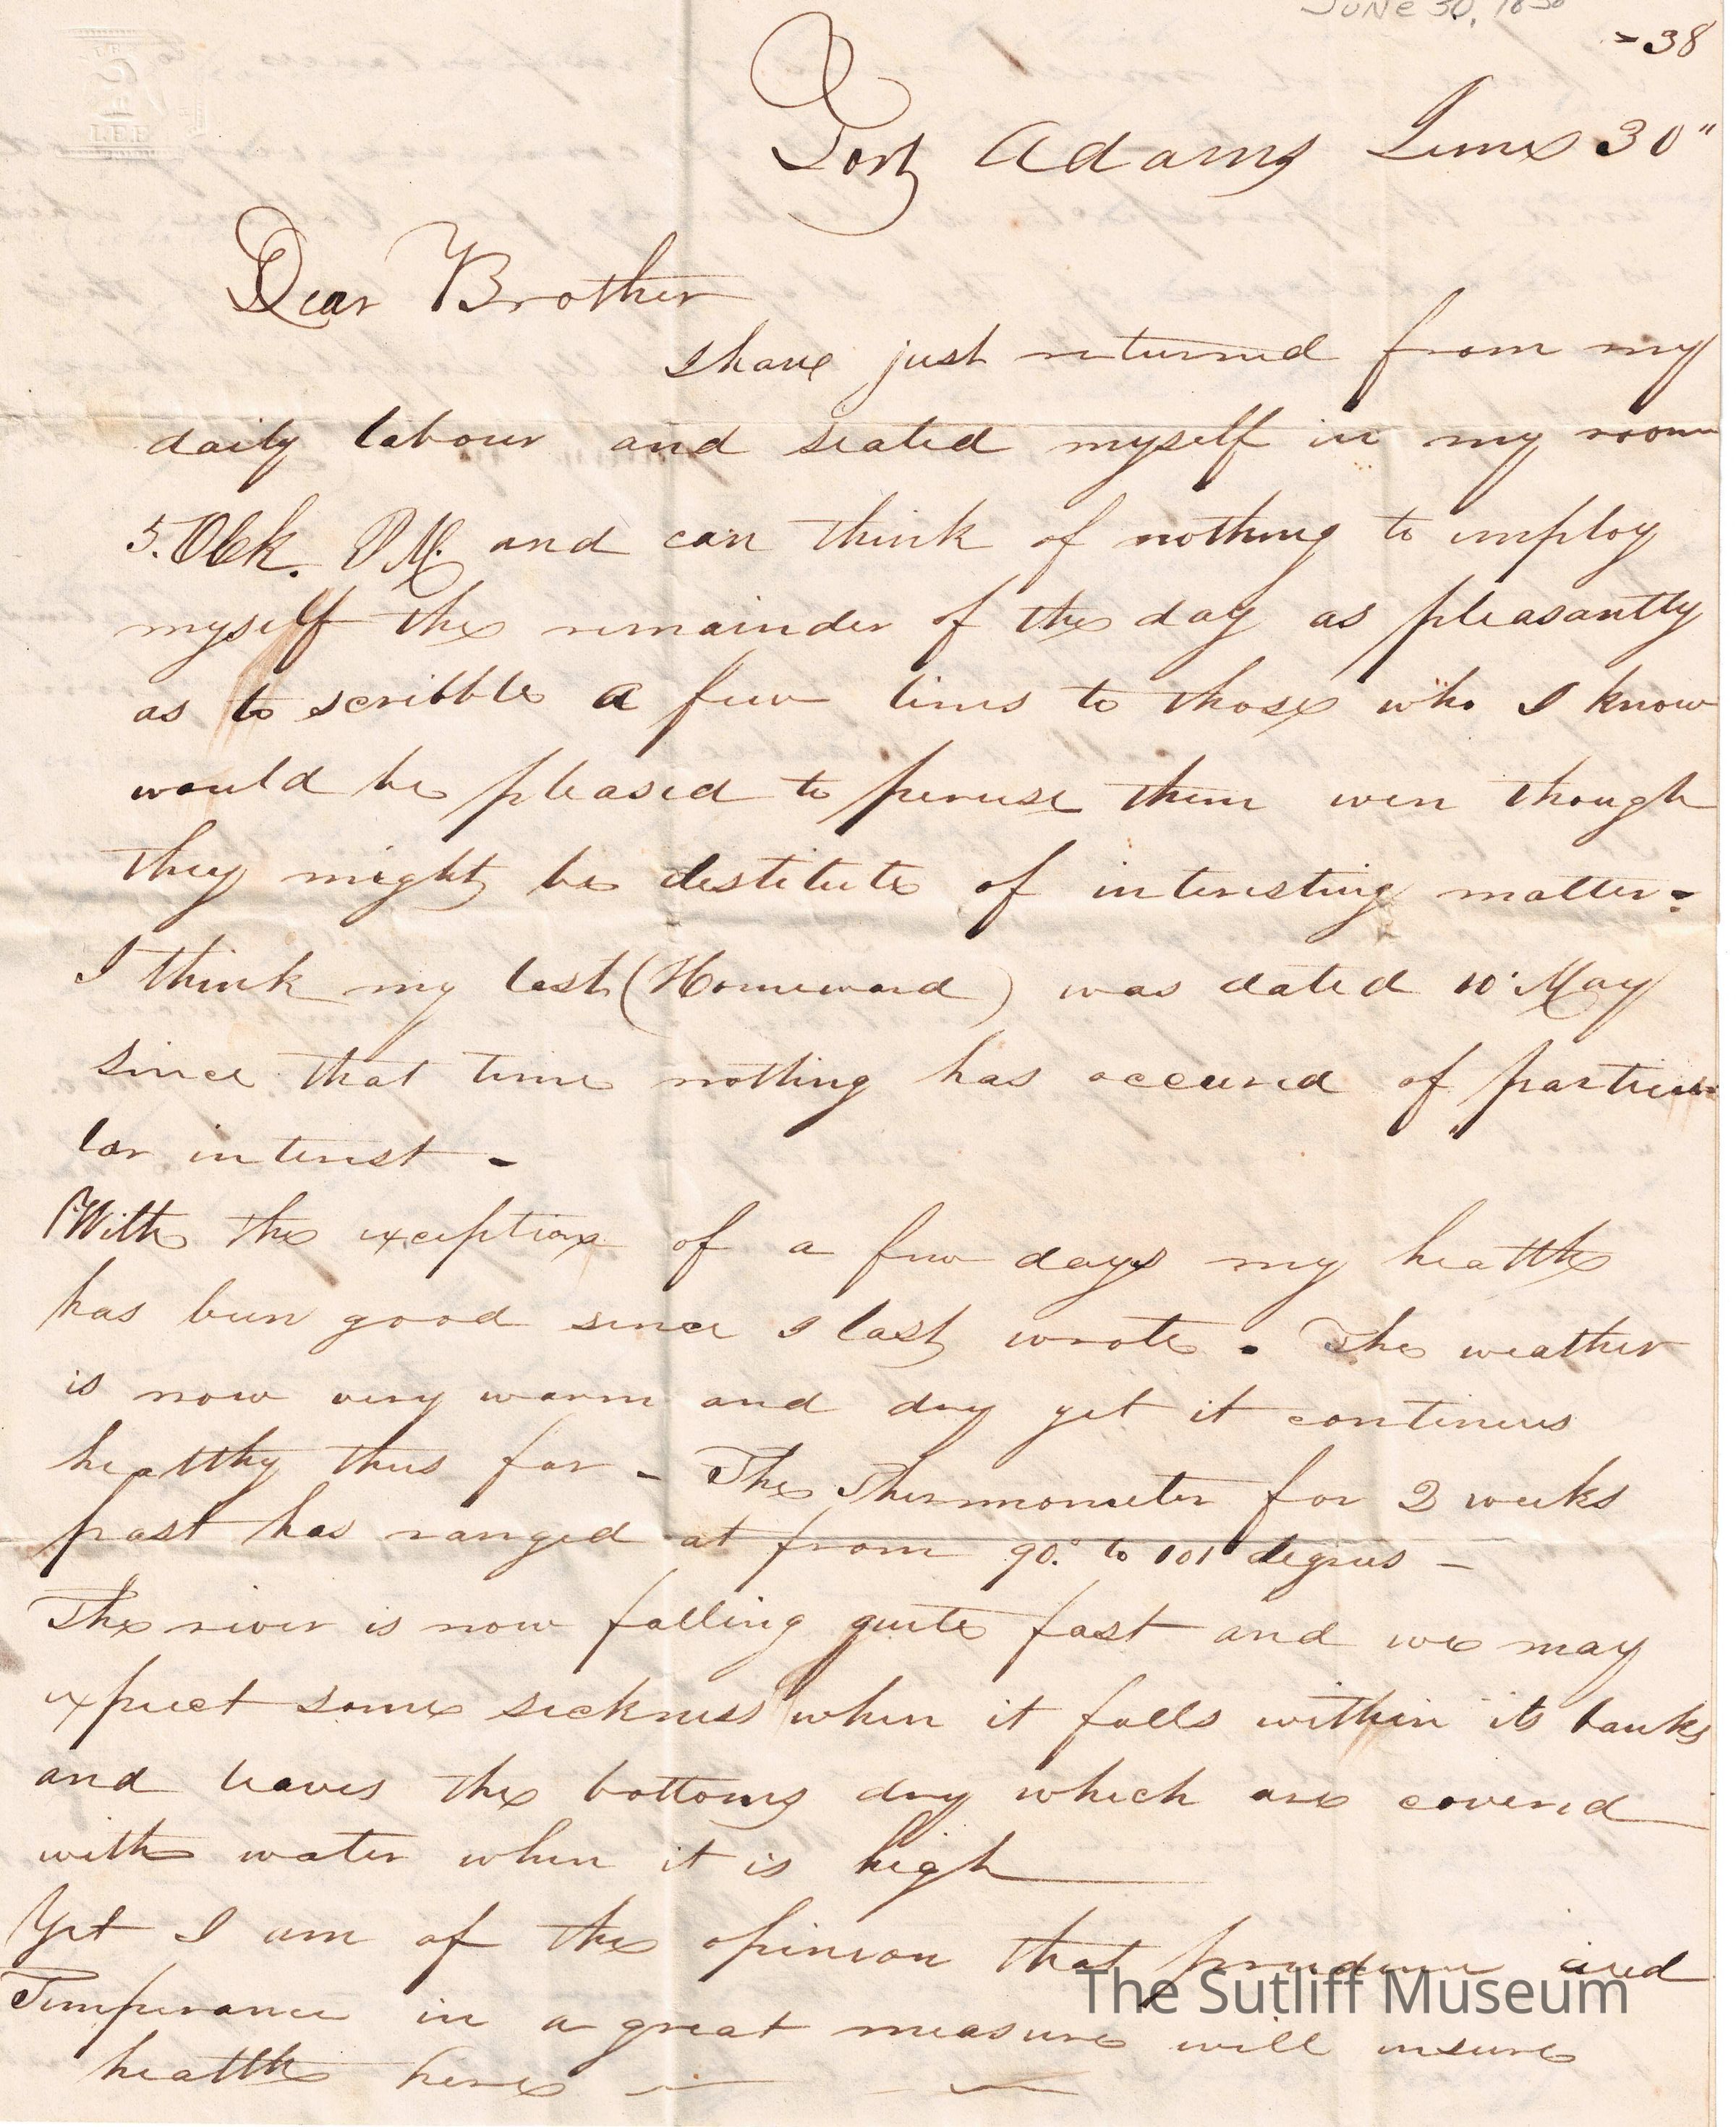 JUNE 30, 1838
- 38
Fort Adams June 30"
Dear Brother
I have just returned from my
daily labour and seated myself in my room
5. Olck. P.M. and can think of nothing to imploy
myself the remainder of the day as pleasantly
as to scribble a few lines to those who I know
would be pleased to peruse them even though
they might be destitute of interesting matter=
I think my last (Homeward) was dated 10 May
since that time nothing has occured of particu
lar interest -
With the exception of a few days my health
has been good since I last wrote. The weather
is now very warm and dry yet it continues
healthy thus far - The Thermometer for 2 weeks
past has ranged at from 90.° to 101° degrees -
The river is now falling quite fast and we may
expect some sickness when it falls within its banks
and leaves the bottoms dry which are covered
with water when it is high
Yet I am of the opinion that prudence and
Temperance in a great measure will insure
health here -
The Sutliff Museum
LEE